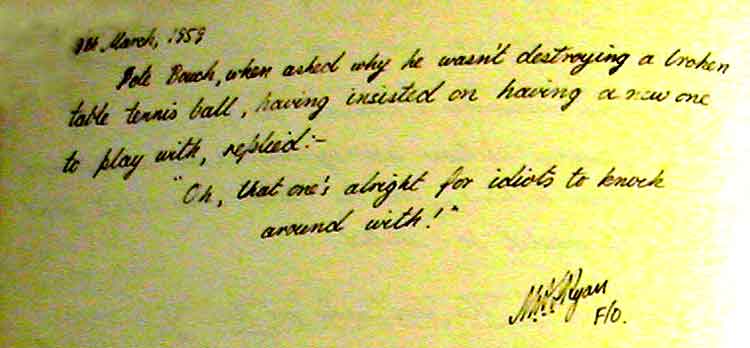 March, 1959
Bouch, when asked why he wasn't destroying a broken
table tennis ball, having insisted on having a new one
to play with, replied:-
"Oh, that one's alright for idiots to knock
around with!"
Ryan
F/O.